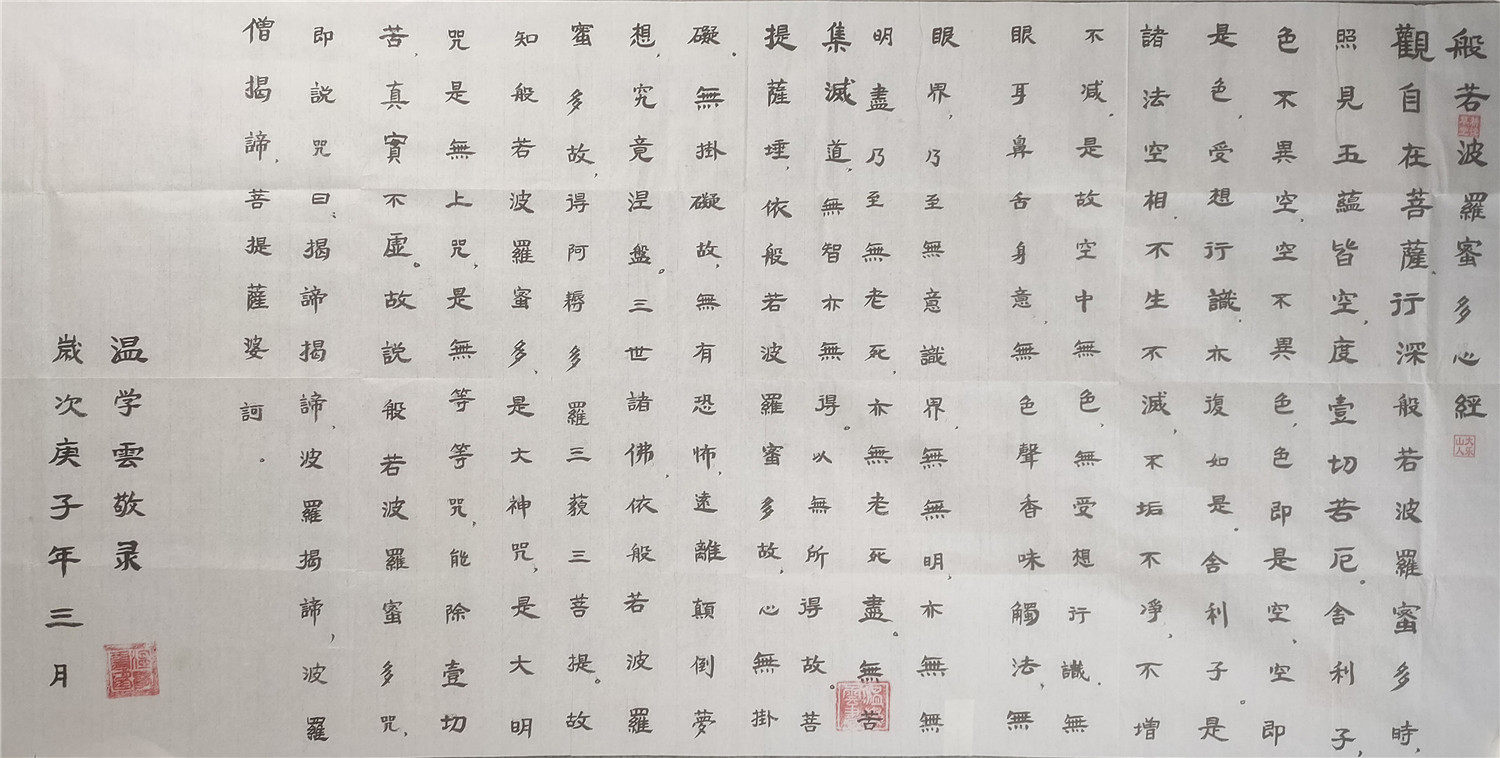 般若波羅蜜多心經
觀自在菩薩,行深般若波羅蜜多時,
照見五蘊皆空,度壹切苦厄。舍利子,
色不異空,空不異色,色即是空、空即
是色,受想行識,亦復如是。舍利子。是
諸法空相,不生不滅,不垢不净,不增
不减.是故空中無色,無受想行識.無
眼耳鼻舌身意,無色聲香味觸法,無
眼界,乃至無意識界,無無明,亦無無
明盡乃至無老死,亦無老死盡。無苦
集滅道,無智亦無得。以無所得故。菩
提薩埵,依般若波羅蜜多故,心無掛
礙.無掛礙故,無有恐怖,遠離顛倒夢
想,究竟涅盤。三世諸佛,依般若波羅
蜜多故,得阿耨多羅三藐三菩提。故
知般若波羅蜜多,是大神咒,是大明
咒是無上咒,是無等等咒,能除壹切
苦,真實不虛。故説般若波羅蜜多咒,
即説咒曰:揭諦揭諦,波羅揭諦,波羅
僧揭諦,菩提薩婆訶。
温学雲敬录
嵗次庚子年三月